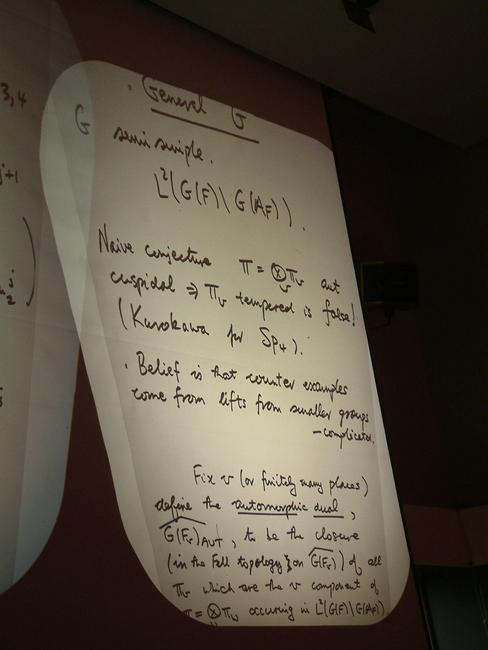 3,4
j+1
· General G
G semi simple.
L²(G(F)\G(A_F)).
Naive conjecture π = ⊗_v π_v aut
cuspidal ⇒ π_v tempered is false!
(Kurokawa for Sp₄).
· Belief is that counter examples
come from lifts from smaller groups
– complicated.
Fix v (or finitely many places)
define the automorphic dual,
\widehat{G(F_v)}_{AUT}, to be the closure
(in the Fell topology on \widehat{G(F_v)}) of all
π_v which are the v component of
π = ⊗ π_v occuring in L²(G(F)\G(A_F))